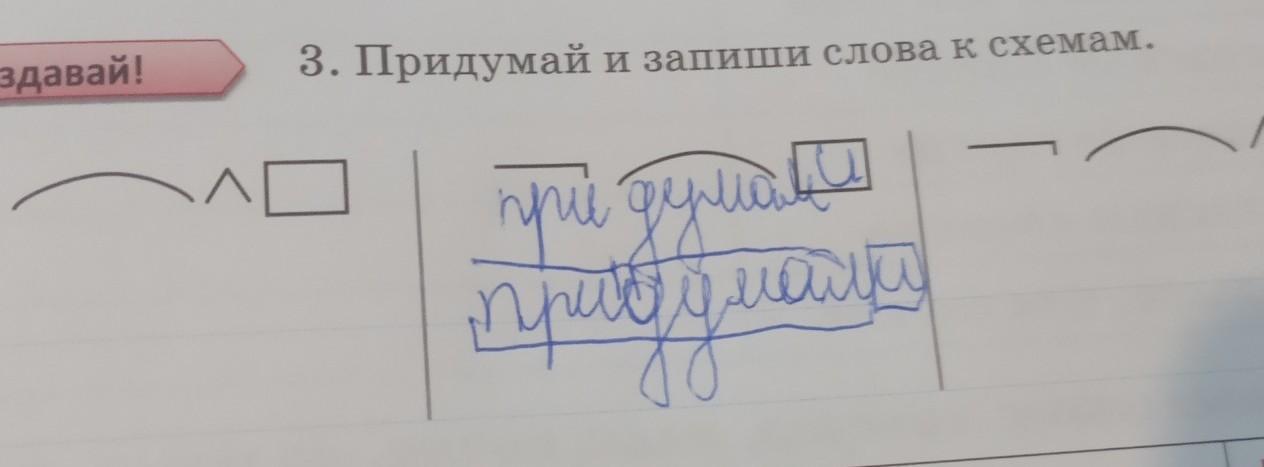 здавай!
3. Придумай и запиши слова к схемам.
придумали
придумали